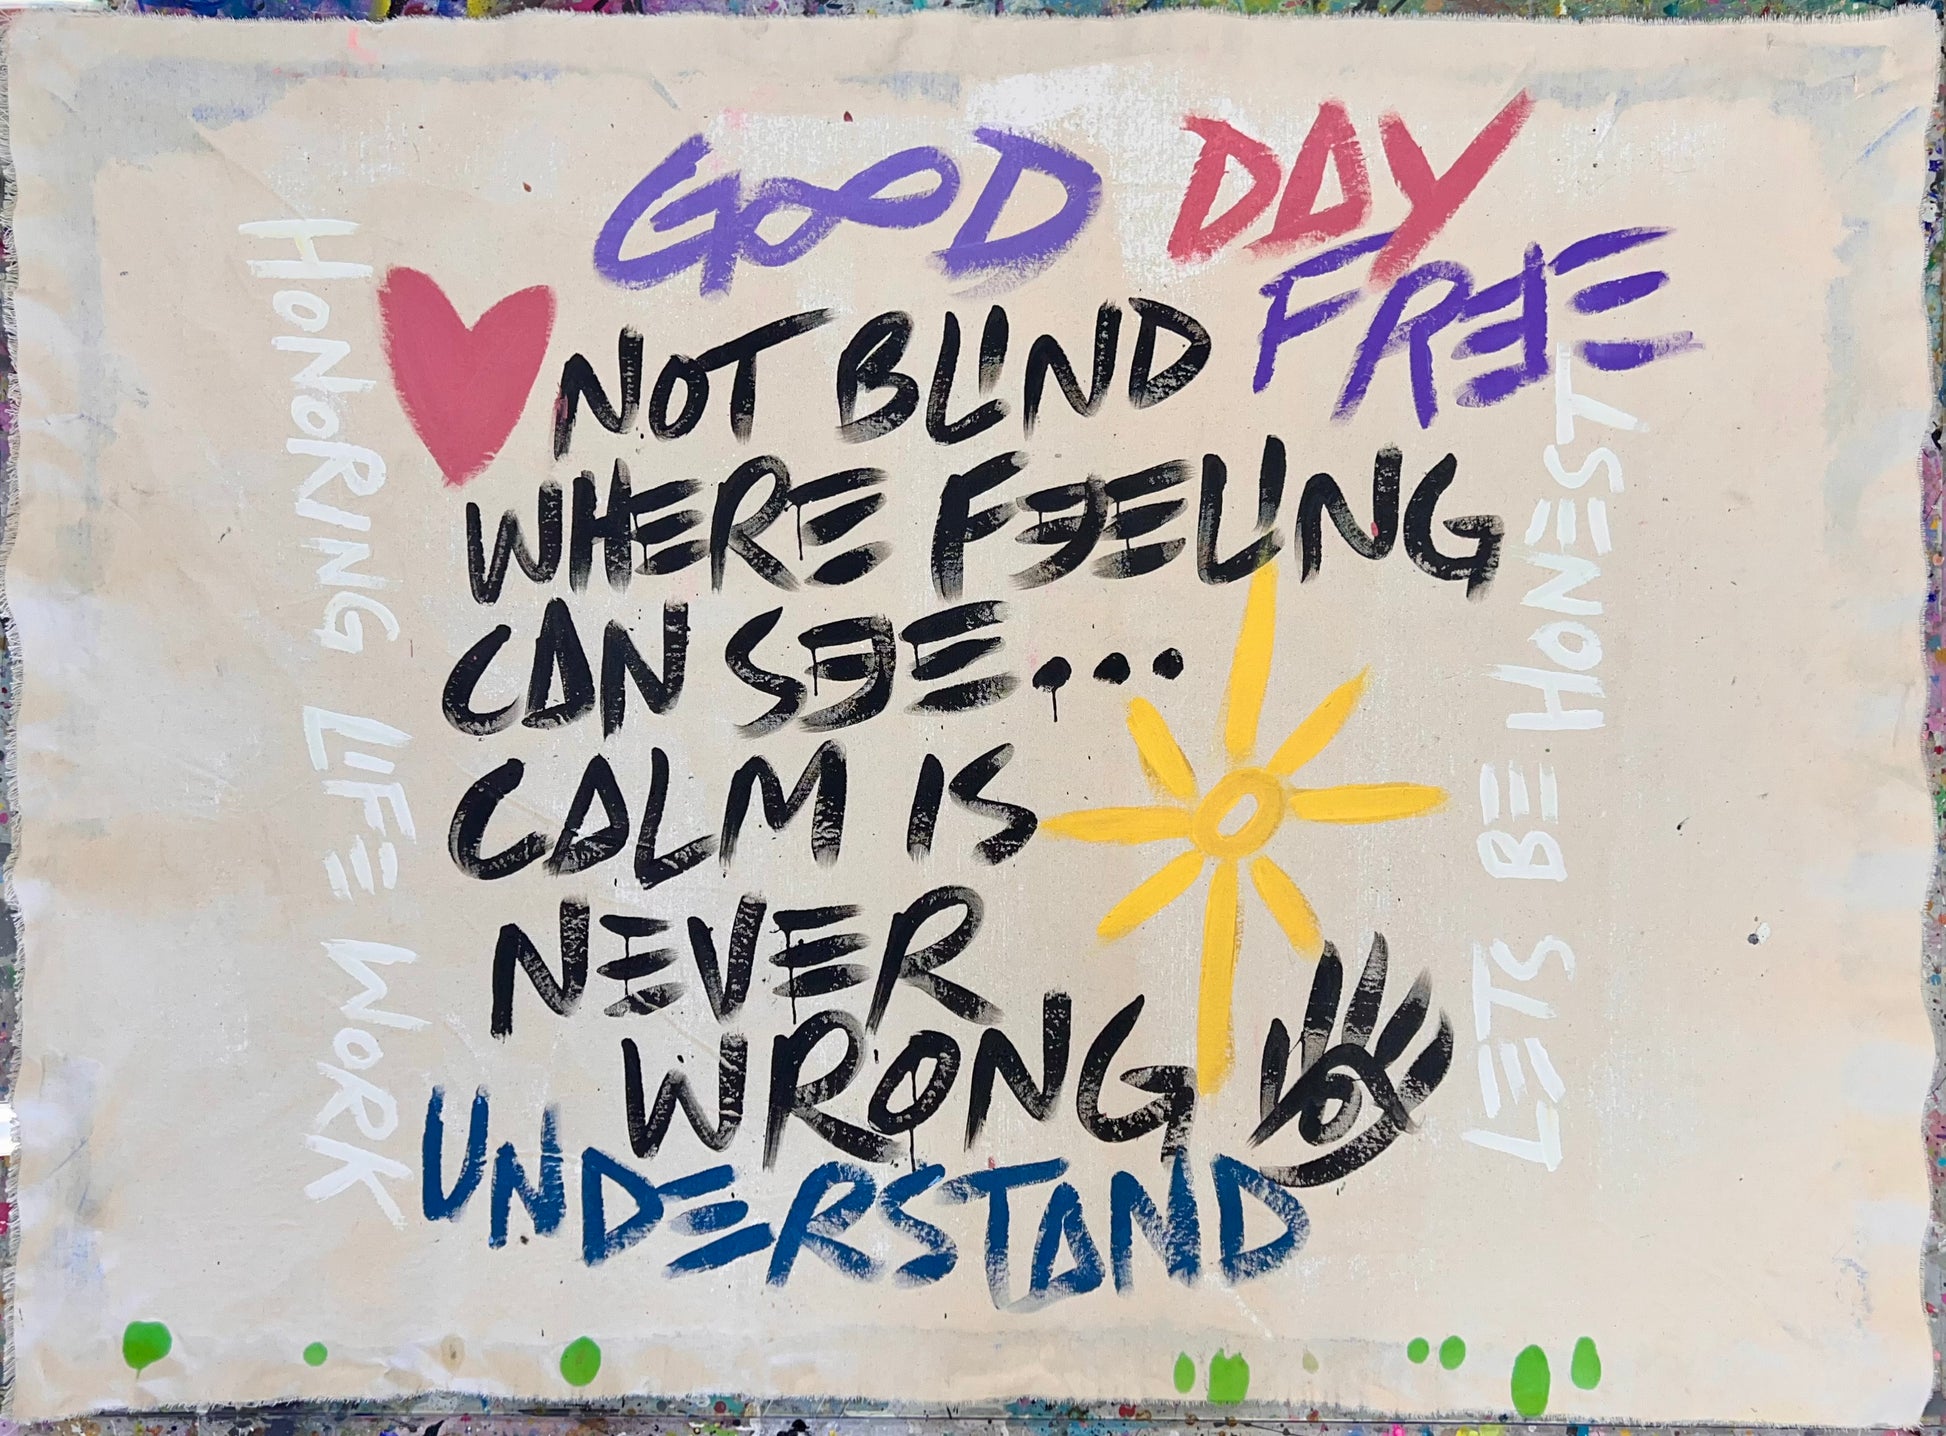 GOOD DAY
FREE
NOT BLIND
WHERE FEELING
CAN SEE...
CALM IS
NEVER
WRONG
UNDERSTAND
HONORING LIFE WORK
LETS BE HONEST